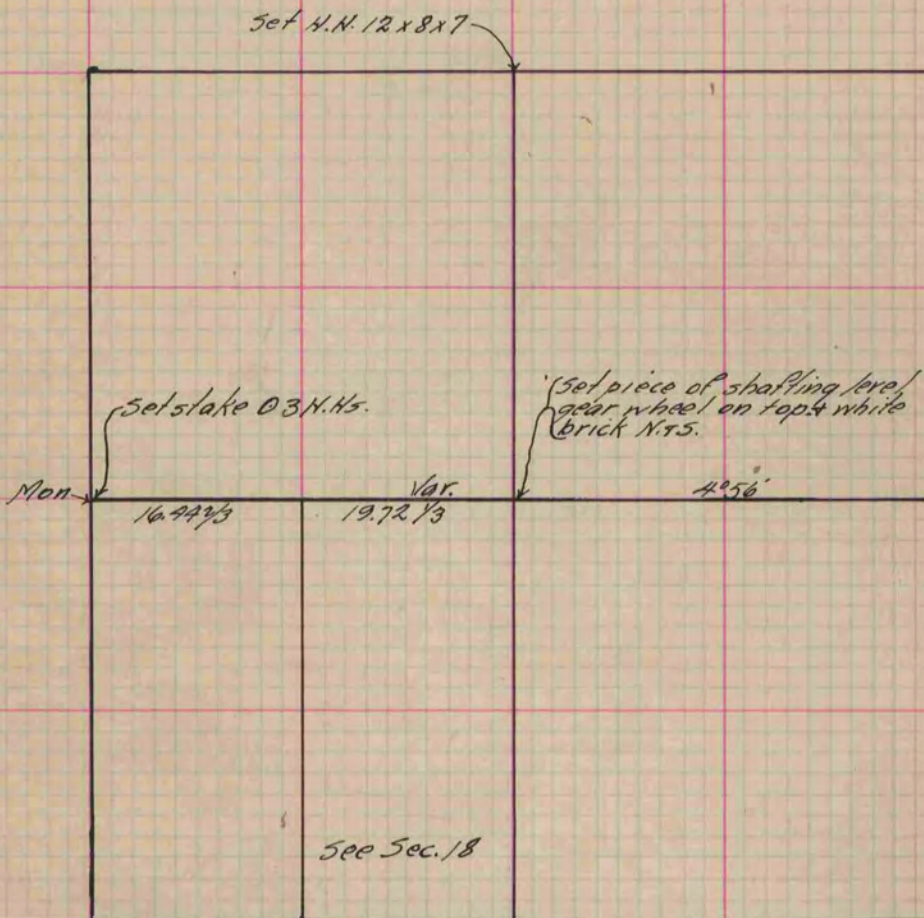 Set N.H. 12x8x7
Set stake & 3 N.Hs.
Set piece of shafting level
gear wheel on top & white
brick N. & S.
Mon.
Var.
4°56'
19.72 1/3
See Sec. 18